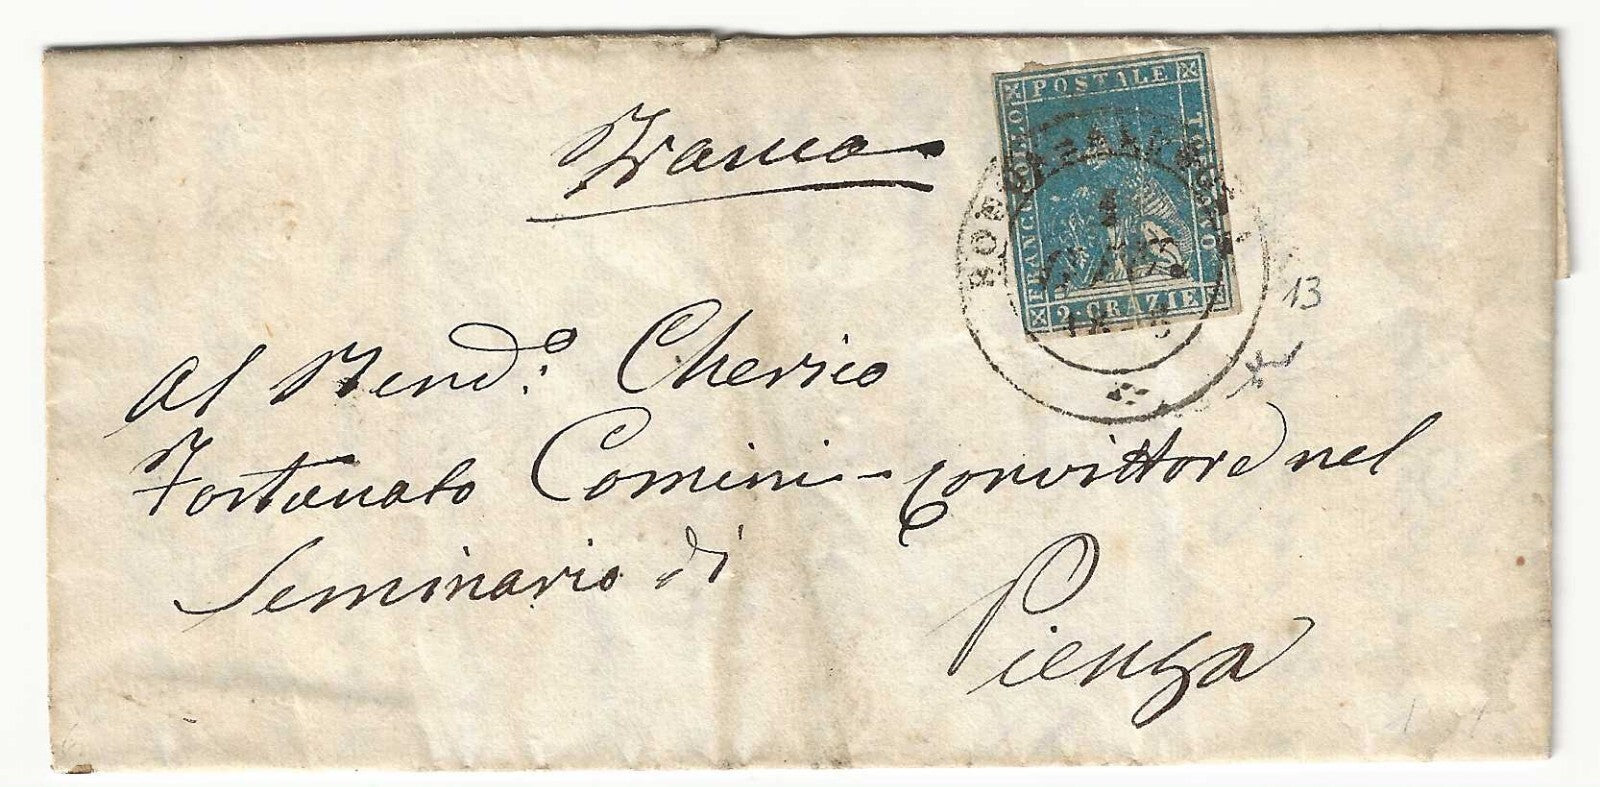 Franca
POSTALE
FRANCOBOLLO
TOSCANO
2·GRAZIE
13
Al Rend.º Cherico
Fortunato Comini - Convittore nel
Seminario di
Pienza